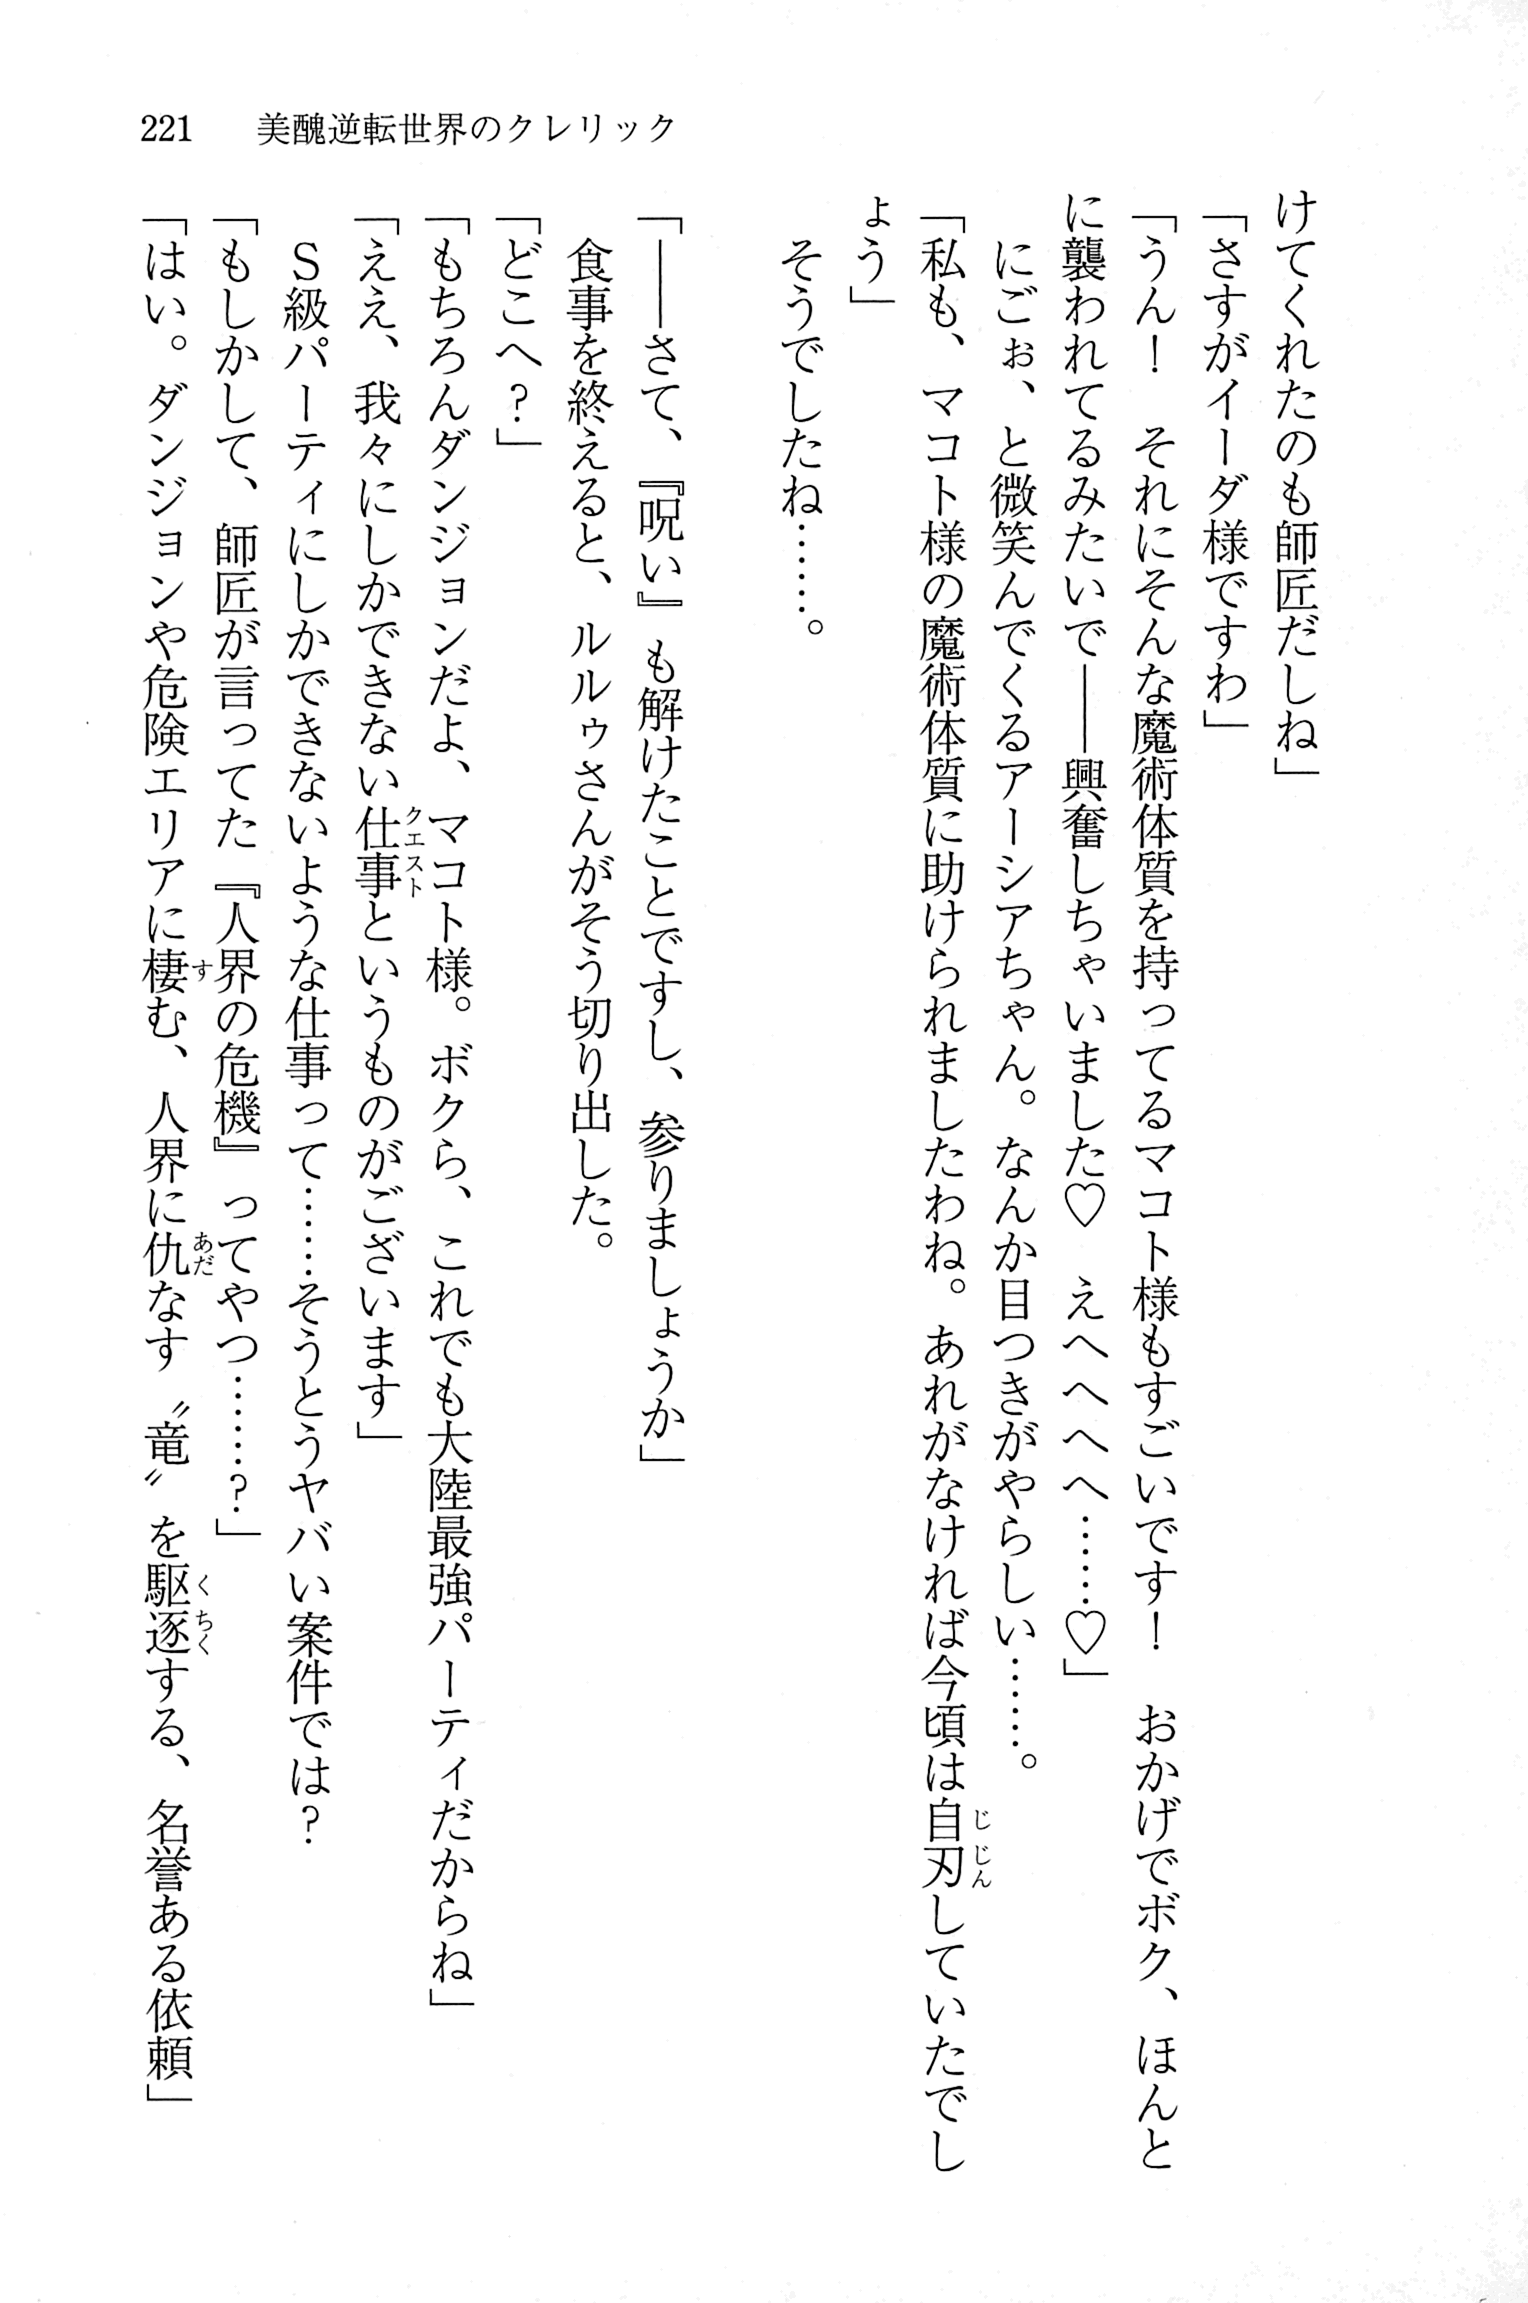 221　美醜逆転世界のクレリック
けてくれたのも師匠だしね」
「さすがイーダ様ですわ」
「うん！　それにそんな魔術体質を持ってるマコト様もすごいです！　おかげでボク、ほんと
に襲われてるみたいで――興奮しちゃいました♡　えへへへへ……♡」
　にごぉ、と微笑んでくるアーシアちゃん。なんか目つきがやらしい……。
「私も、マコト様の魔術体質に助けられましたわね。あれがなければ今頃は自刃していたでし
じじん
ょう」
　そうでしたね……。
「――さて、『呪い』も解けたことですし、参りましょうか」
　食事を終えると、ルルゥさんがそう切り出した。
「どこへ？」
「もちろんダンジョンだよ、マコト様。ボクら、これでも大陸最強パーティだからね」
「ええ、我々にしかできない仕事というものがございます」
クエスト
　Ｓ級パーティにしかできないような仕事って……そうとうヤバい案件では？
「もしかして、師匠が言ってた『人界の危機』ってやつ……？」
「はい。ダンジョンや危険エリアに棲む、人界に仇なす〝竜〟を駆逐する、名誉ある依頼」
す
あだ
くちく